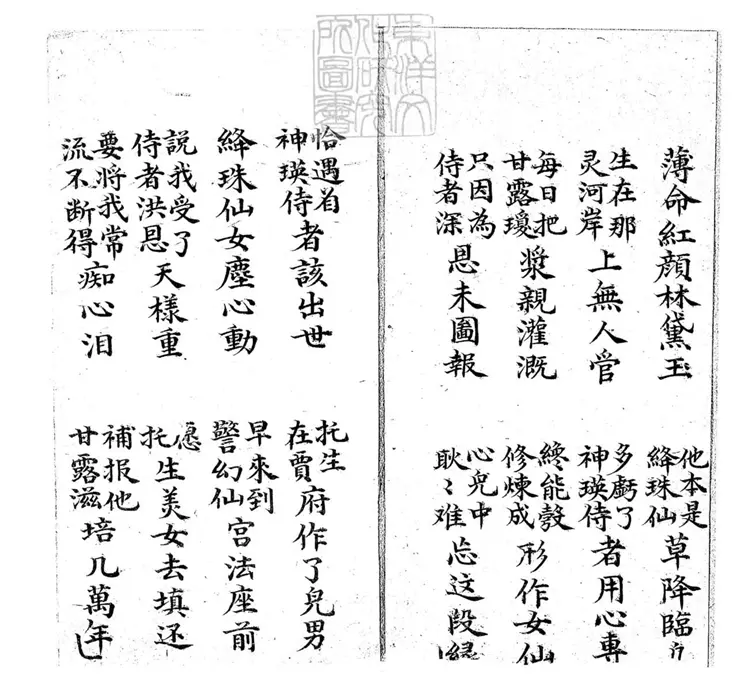 東洋文
化研究
所圖書
薄命紅顔林黛玉 他本是絳珠仙草降臨
生在那灵河岸上無人管 多虧了神瑛侍者用心專
每日把甘露瓊漿親灌溉 纔能彀修煉成形作女仙
只因為侍者深恩未圖報 心兒中耿〻难忘这段緣
恰遇着神瑛侍者該出世 托生在賈府作了兒男
絳珠仙女塵心動 早來到警幻仙宫法座前
說我受了侍者洪恩天樣重 愿托生美女去填还
要將我常流不断得痴心泪 補报他甘露滋培几萬年